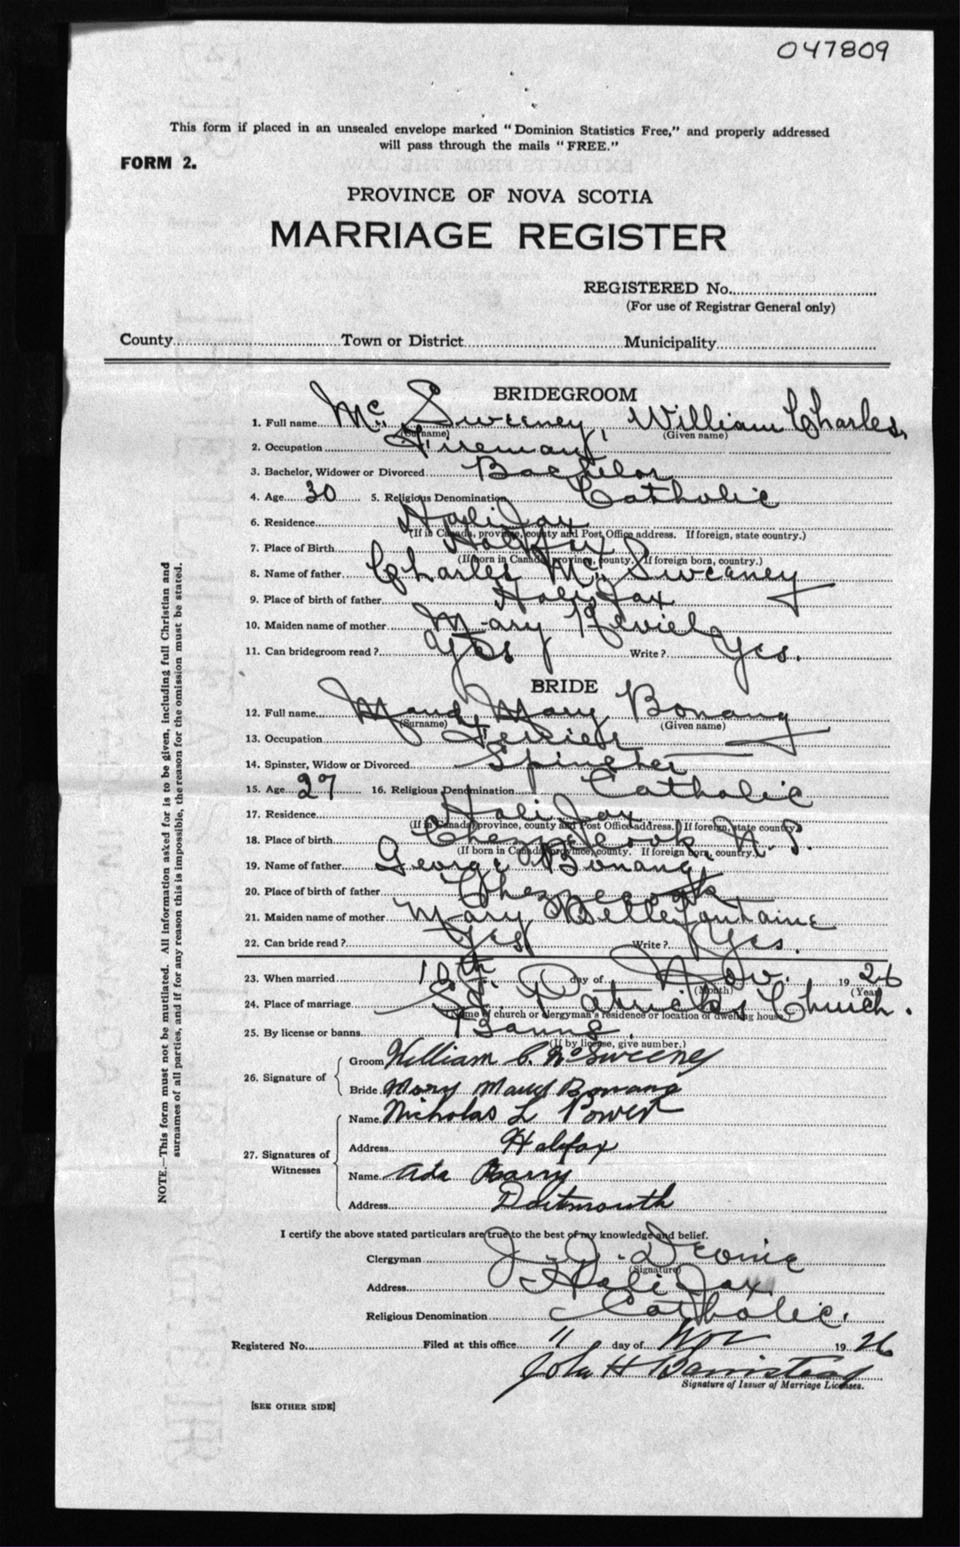 047809
This form if placed in an unsealed envelope marked "Dominion Statistics Free," and properly addressed
will pass through the mails "FREE."
FORM 2.
PROVINCE OF NOVA SCOTIA
MARRIAGE REGISTER
REGISTERED No.
(For use of Registrar General only)
County Town or District Municipality
BRIDEGROOM
1. Full name Mc Sweeney, William Charles,
(Surname) (Given name)
2. Occupation Fireman
3. Bachelor, Widower or Divorced Bachelor
4. Age 30 5. Religious Denomination Catholic
6. Residence Halifax
(If in Canada, province, county and Post Office address. If foreign, state country.)
7. Place of Birth Halifax
(If born in Canada, province, county. If foreign born, country.)
8. Name of father Charles Mc Sweeney
9. Place of birth of father Halifax
10. Maiden name of mother Mary
11. Can bridegroom read? Yes Write? Yes.
BRIDE
12. Full name Maud Mary Bonang
(Surname) (Given name)
13. Occupation
14. Spinster, Widow or Divorced Spinster
15. Age 27 16. Religious Denomination Catholic
17. Residence Halifax
(If in Canada, province, county and Post Office address. If foreign, state country)
18. Place of birth Chezzetcook N. S.
(If born in Canada, province, county. If foreign born, country.)
19. Name of father George Bonang
20. Place of birth of father Chezzetcook
21. Maiden name of mother Mary Bellefontaine
22. Can bride read? Yes Write? Yes.
23. When married 10th day of Nov. 1926
(Month) (Year)
24. Place of marriage St. Patricks Church.
(Name of church or clergyman's residence or location of dwelling house)
25. By license or banns Banns
(If by license, give number.)
26. Signature of
Groom William C. McSweeney
Bride Mary Maud Bonang
27. Signatures of Witnesses
Name Nicholas L Power
Address Halifax
Name Ada Barry
Address Dartmouth
I certify the above stated particulars are true to the best of my knowledge and belief.
Clergyman J. J. Devine
(Signature)
Address Halifax
Religious Denomination Catholic.
Registered No. Filed at this office 11 day of Nov 1926
John H Barnstead
Signature of Issuer of Marriage Licenses.
[SEE OTHER SIDE]
NOTE.—This form must not be mutilated. All information asked for is to be given, including full Christian and
surnames of all parties, and if for any reason this is impossible, the reason for the omission must be stated.